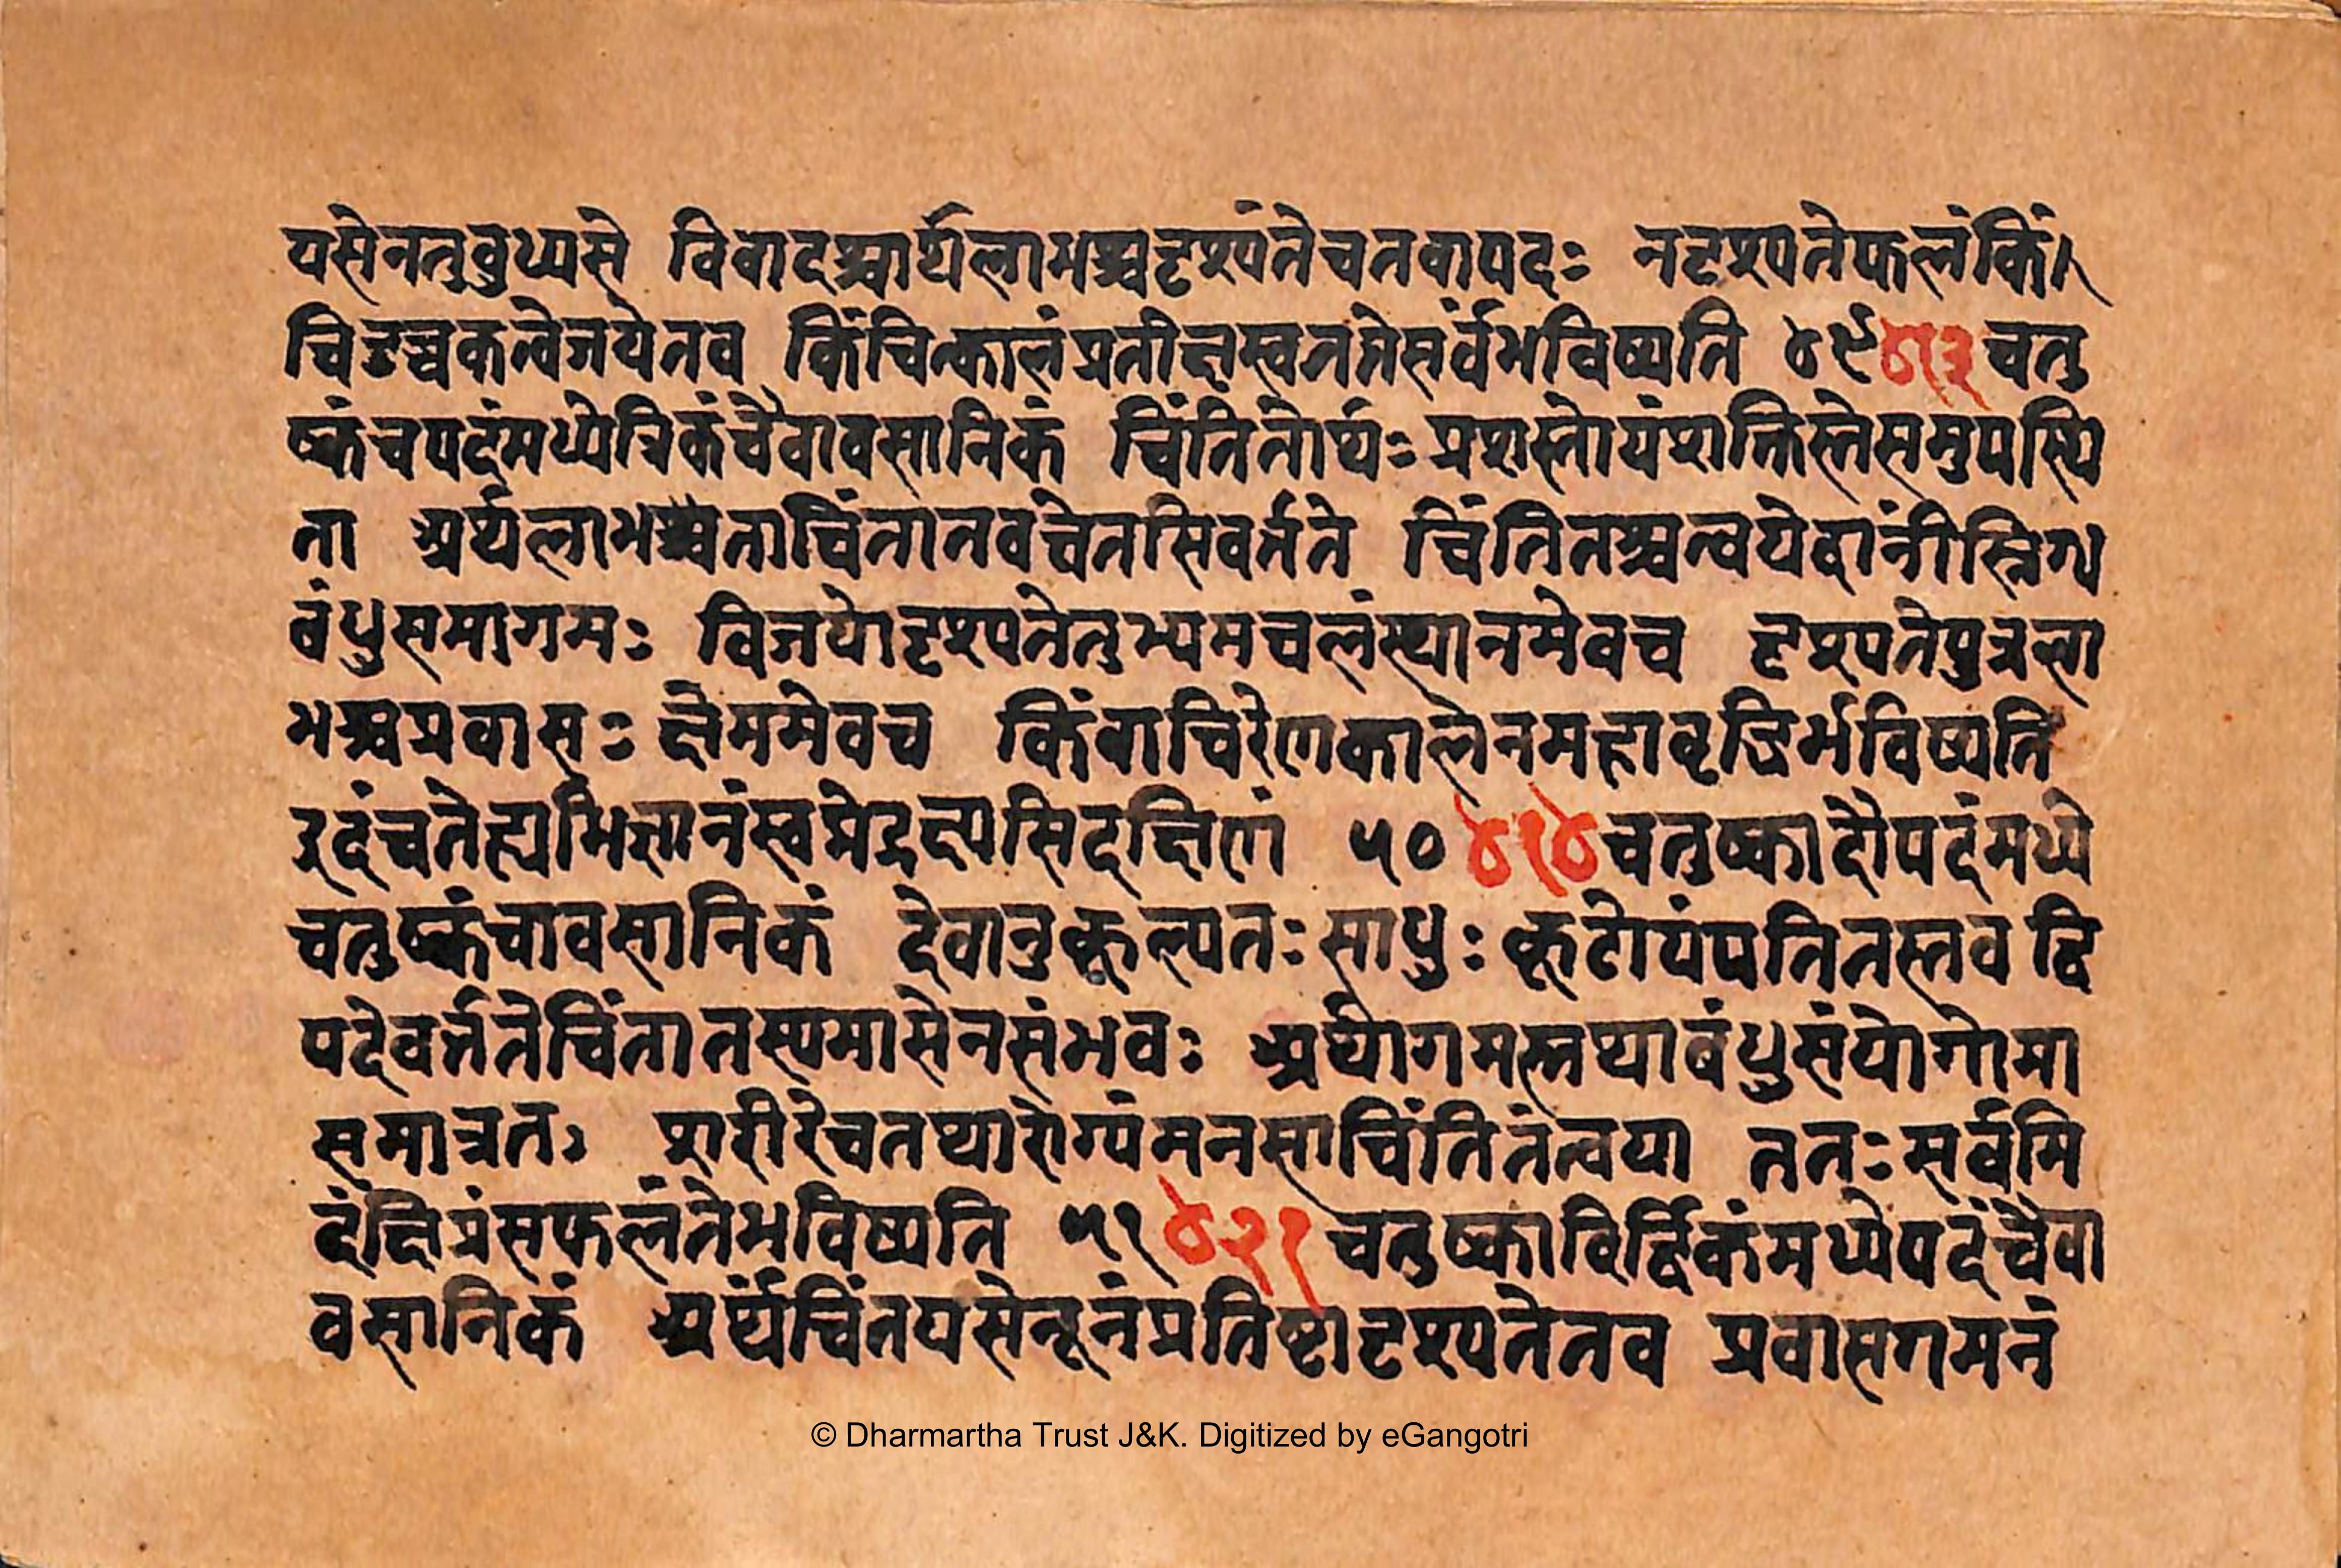 यसेनतुबुध्यसे विवादश्चार्थलाभश्चदृश्यंतेचनवापदः नदृश्यतेफलंकिं।
चिदुच्चकत्वेजयेतव किंचित्कालंप्रतीक्षस्वततोसर्वंभविष्यति ४९ ४१३ चतु
ष्कंचपदंमध्येत्रिकंचैवावसानिकं चिंतितोर्थःप्रशस्तोयंशक्तिस्तेसमुपस्थि
ता अर्थलाभश्चताचिंतातवचेतसिवर्तते चिंतितश्चत्वयेदानींस्निग्ध
बंधुसमागमः विजयोदृश्यतेतुभ्यमचलंस्थानमेवच दृश्यतेपुत्रला
भश्चप्रवासःक्षेममेवच किंवाचिरेणकालेनमहावृद्धिर्भविष्यति
इदंचतेह्यभिज्ञानंस्वप्नेद्रक्ष्यसिदक्षिणं ५० ४१४ चतुष्कादौपदंमध्ये
चतुष्कंचावसानिकं देवानुकूल्यतःसाधुःकूटोयंपतितस्तव द्वि
पदेवर्ततेचिंतातस्यमासेनसंभवः अर्थागमस्तथाबंधुसंयोगोमा
समात्रतः शरीरेचतथारोग्यंमनसाचिंतितंत्वया ततःसर्वमि
दंक्षिप्रंसफलंतेभविष्यति ५१ ४२१ चतुष्काविर्द्विकंमध्येपदंचैवा
वसानिकं अर्थंचिंतयसेनूनंप्रतिष्टादृश्यतेतव प्रवासगमनं
© Dharmartha Trust J&K. Digitized by eGangotri